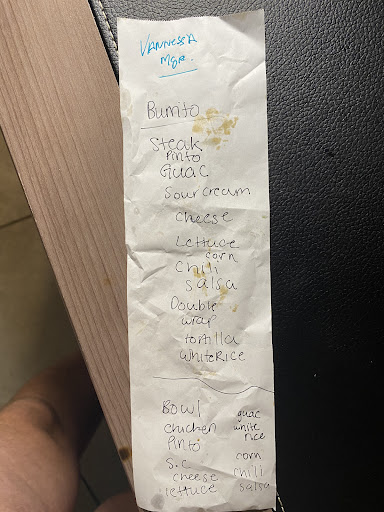 VANNESSA
Mgr.
Burrito
Steak
Pinto
Guac
Sour cream
Cheese
Lettuce
corn
Chili
salsa
Double
wrap
tortilla
White Rice
Bowl
chicken
Pinto
S.C
cheese
lettuce
guac
white
rice
corn
chili
salsa